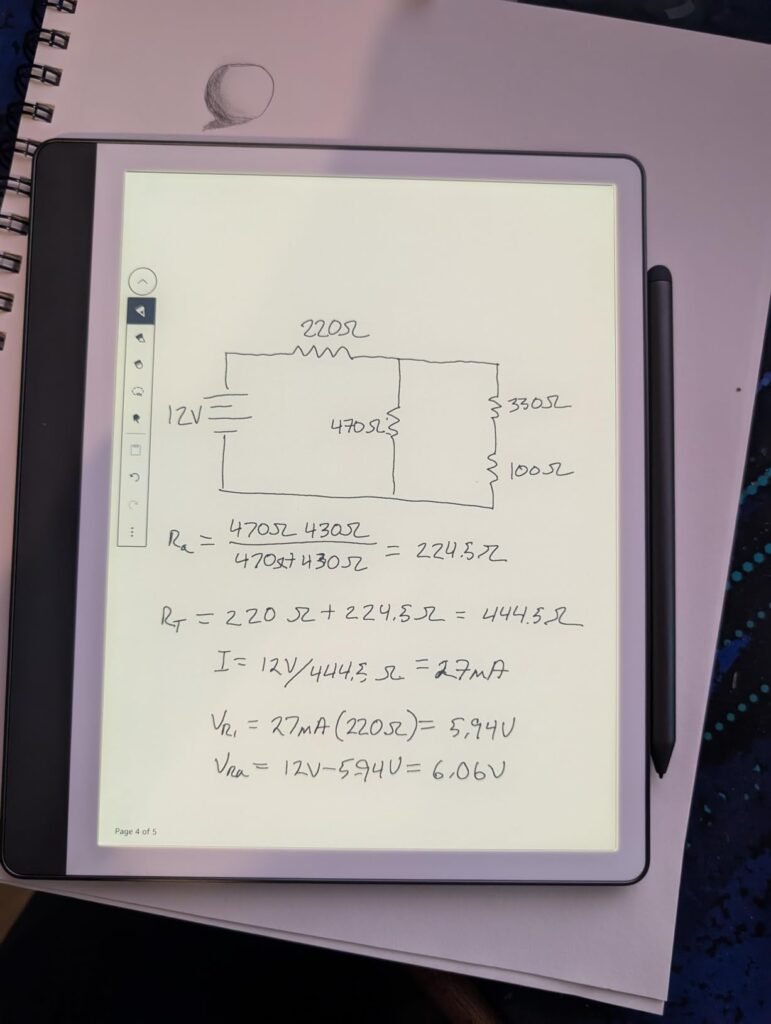 220Ω
12V
470Ω
330Ω
100Ω
Ra = 470Ω 430Ω / 470Ω+430Ω = 224.5Ω
RT = 220 Ω + 224.5Ω = 444.5Ω
I = 12V/444.5 Ω = 27mA
VR1 = 27mA(220Ω) = 5.94V
VRa = 12V-5.94V = 6.06V
Page 4 of 5